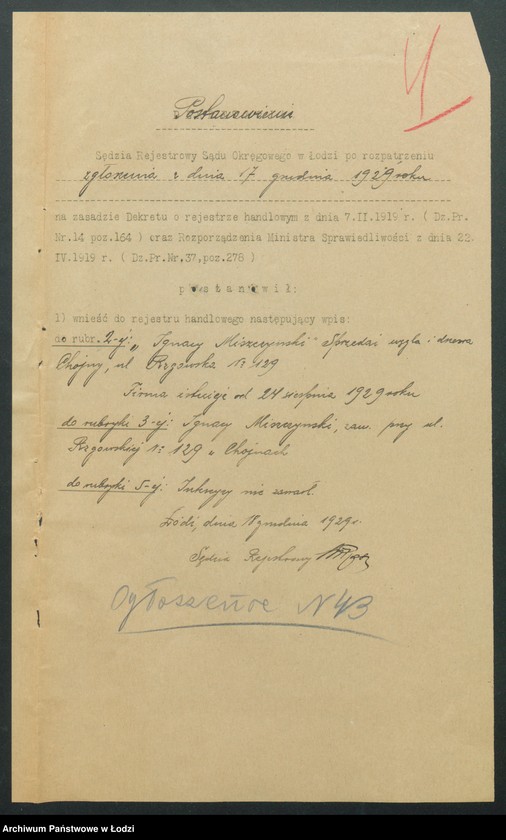 4
Postanowienie
Sędzia Rejestrowy Sądu Okręgowego w Łodzi po rozpatrzeniu
zgłoszenia z dnia 17 grudnia 1929 roku
na zasadzie Dekretu o rejestrze handlowym z dnia 7.II.1919 r. ( Dz.Pr.
Nr.14 poz.164 ) oraz Rozporządzenia Ministra Sprawiedliwości z dnia 22.
IV.1919 r. ( Dz.Pr.Nr.37,poz.278 )
p o s t a n o w i ł :
1) wnieść do rejestru handlowego następujący wpis:
do rubr. 2-ej: „Ignacy Miszczyński" Sprzedaż węgla i drzewa
Chojny, ul Rzgowska № 129
Firma istnieje od 24 sierpnia 1929 roku
do rubryki 3-ej: Ignacy Miszczyński, zam. przy ul.
Rzgowskiej № 129 w Chojnach
do rubryki 5-ej: Intercyzy nie zawarł.
Łódź, dnia grudnia 1929 r.
Sędzia Rejestrowy
Ogłoszenie N 43
Archiwum Państwowe w Łodzi